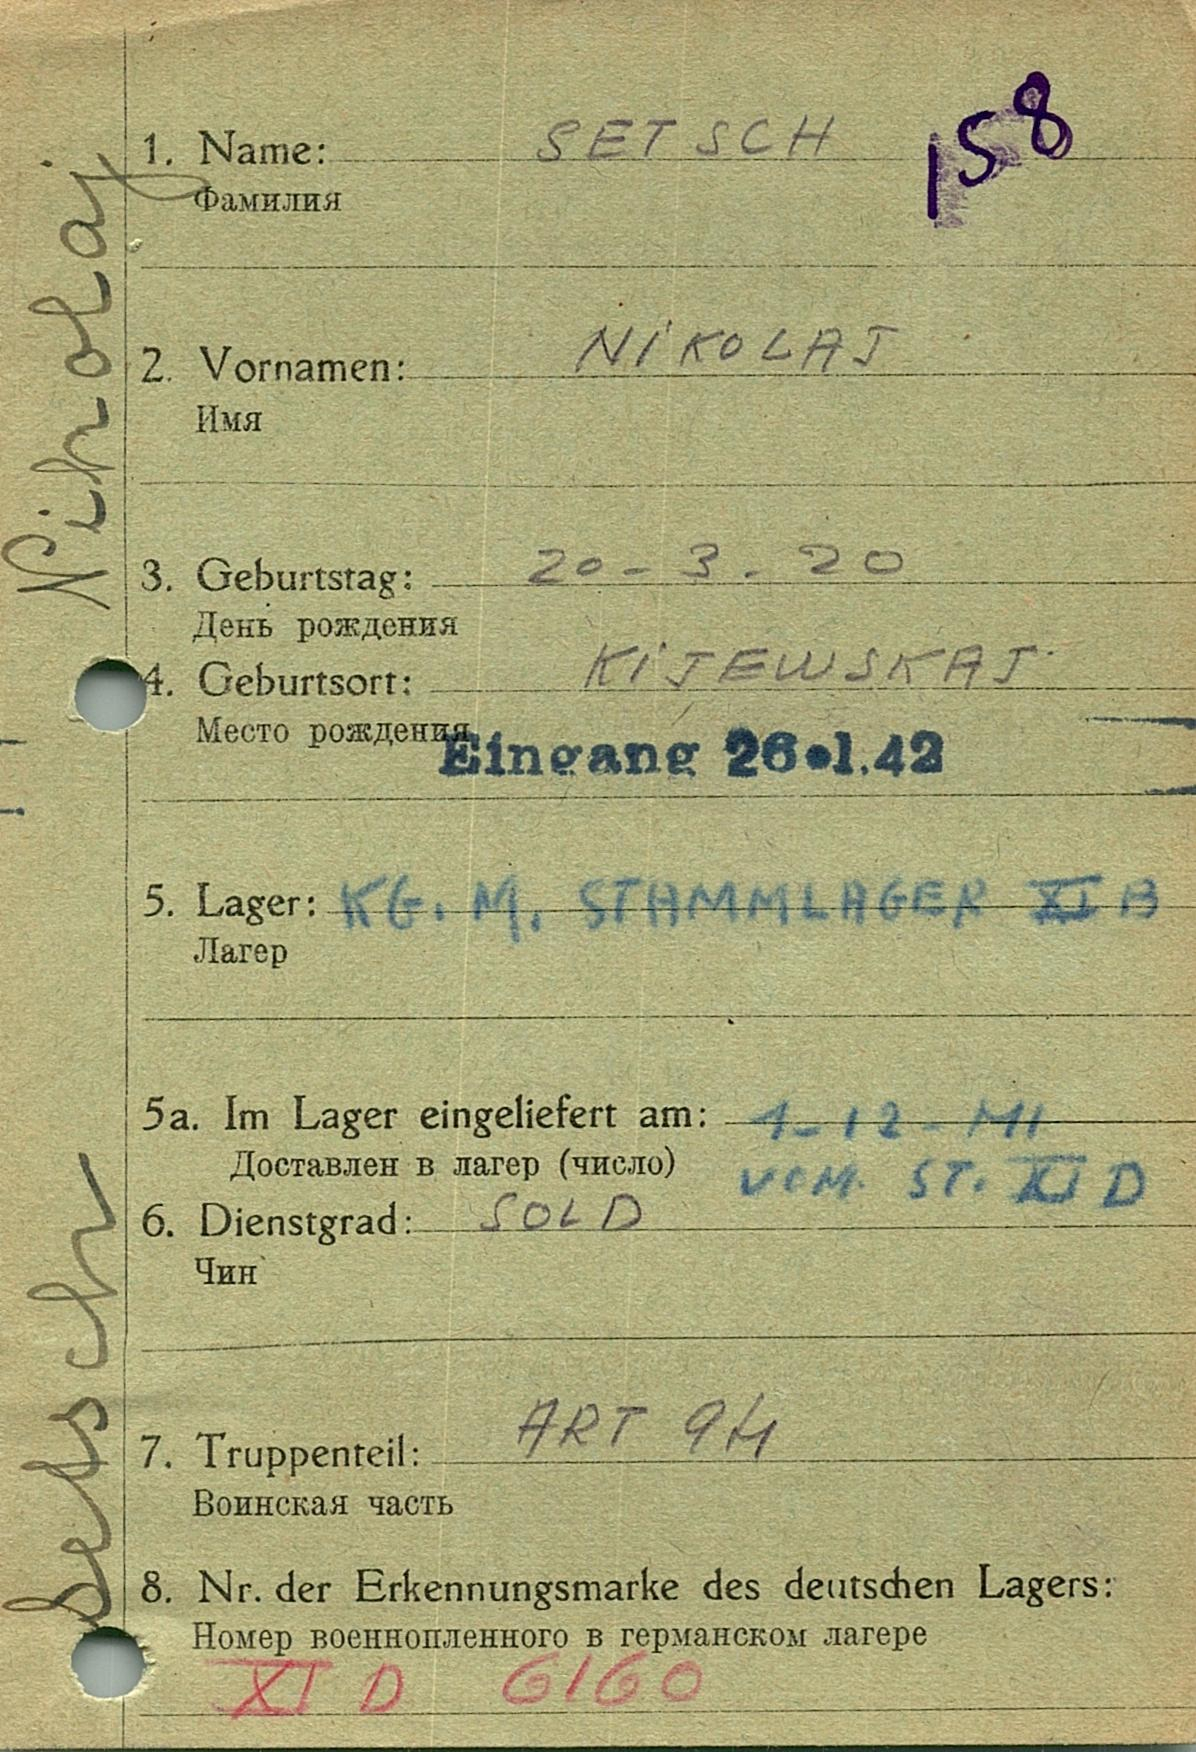 158
1. Name: SETSCH
Фамилия
2. Vornamen: NIKOLAJ
Имя
3. Geburtstag: 20-3.20
День рождения
4. Geburtsort: KIJEWSKAJ.
Место рождения
Eingang 26.1.42
5. Lager: KG. M. STAMMLAGER XI B
Лагер
5a. Im Lager eingeliefert am: 1-12-41
Доставлен в лагер (число) VOM. ST. XI D
6. Dienstgrad: SOLD
Чин
7. Truppenteil: ART 94
Воинская часть
8. Nr. der Erkennungsmarke des deutschen Lagers:
Номер военнопленного в германском лагере
XI D 6160
Setsch Nikolaj